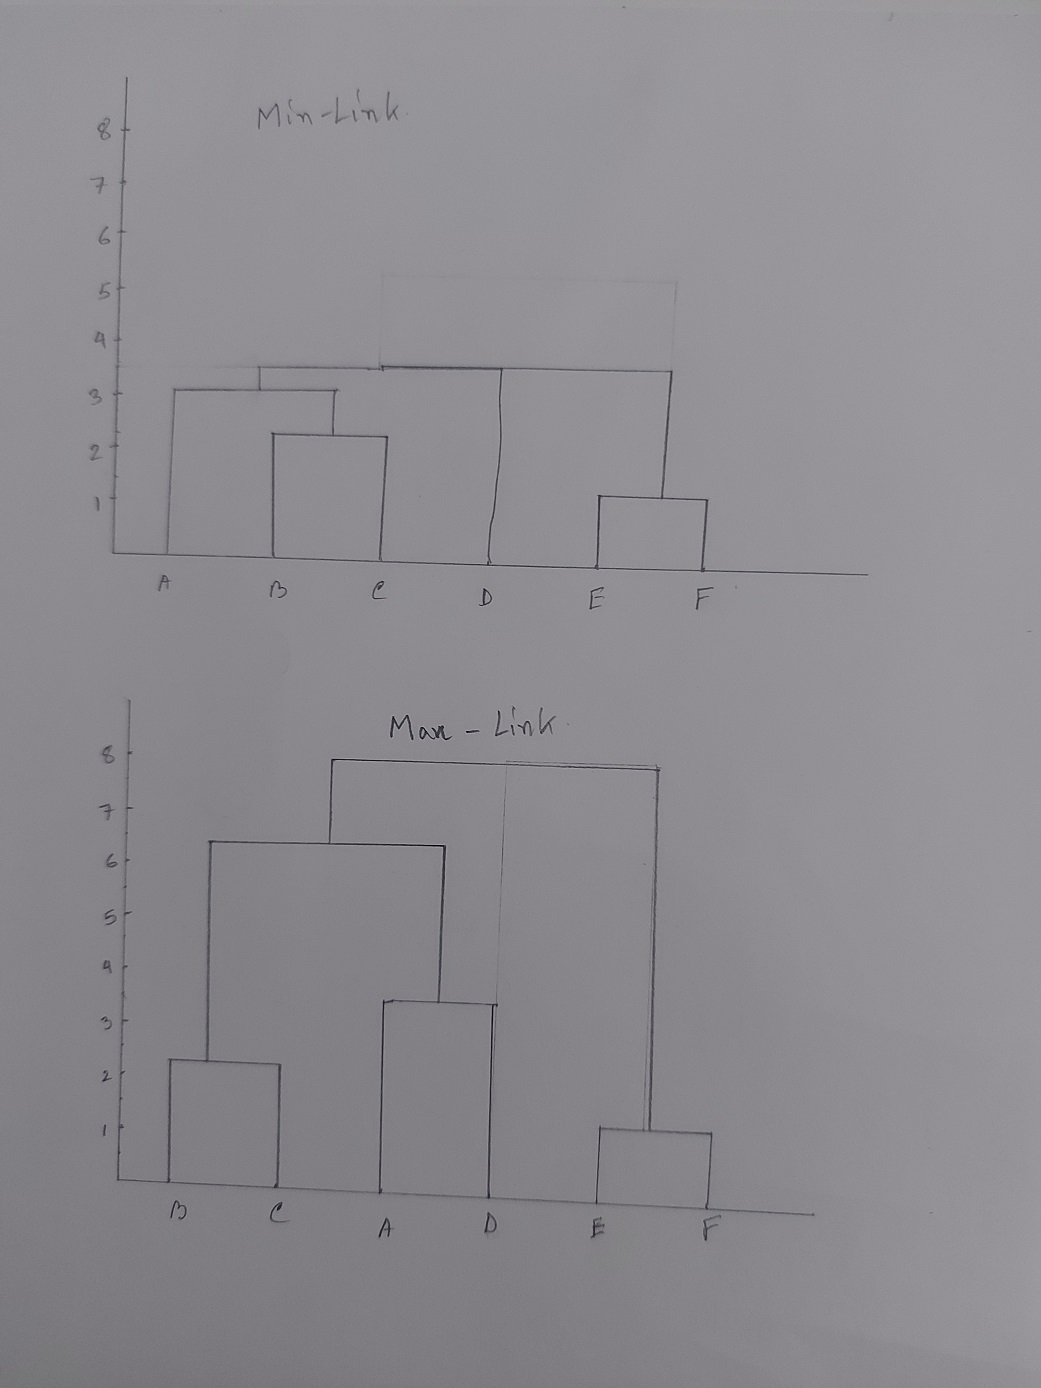 Min-Link
8
7
6
5
4
3
2
1
A B C D E F
Max - Link
8
7
6
5
4
3
2
1
B C A D E F